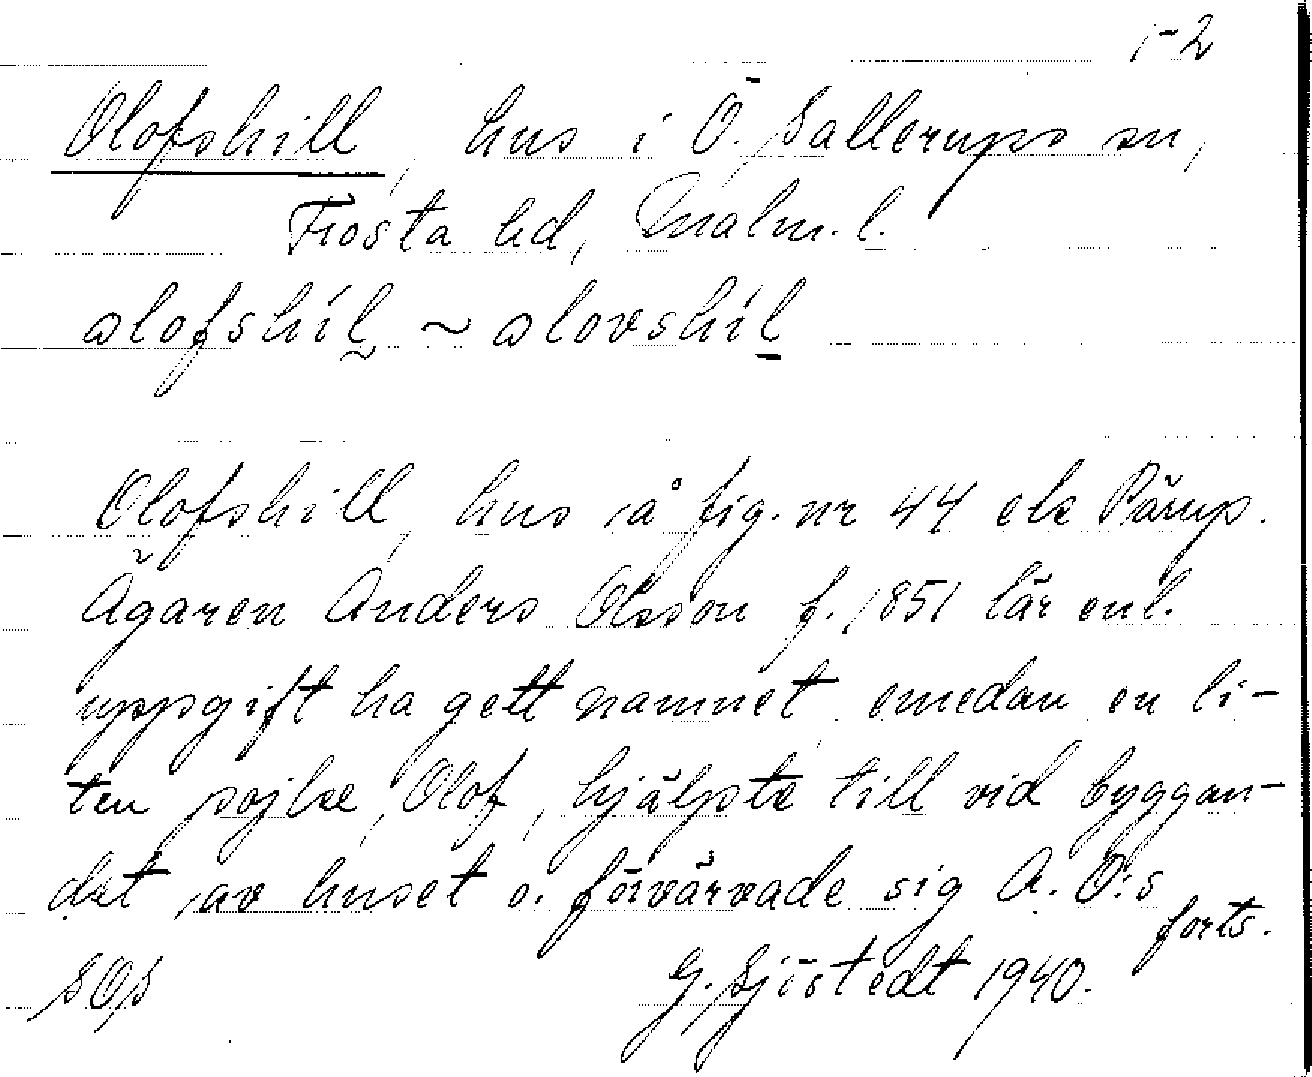 1-2
Olofshill, hus i Ö. Sallerups sn,
Frosta hd, Malm. l.
olofshíl ~ olovshíl
Olofshill, hus å fig. nr 44 ek Pärup.
Ägaren Anders Olsson f. 1851 lär enl.
uppgift ha gett namnet, emedan en li-
ten pojke, Olof, hjälpte till vid byggan-
det av huset o. förvärvade sig A. O:s
forts.
SOS
G. Sjöstedt 1940.